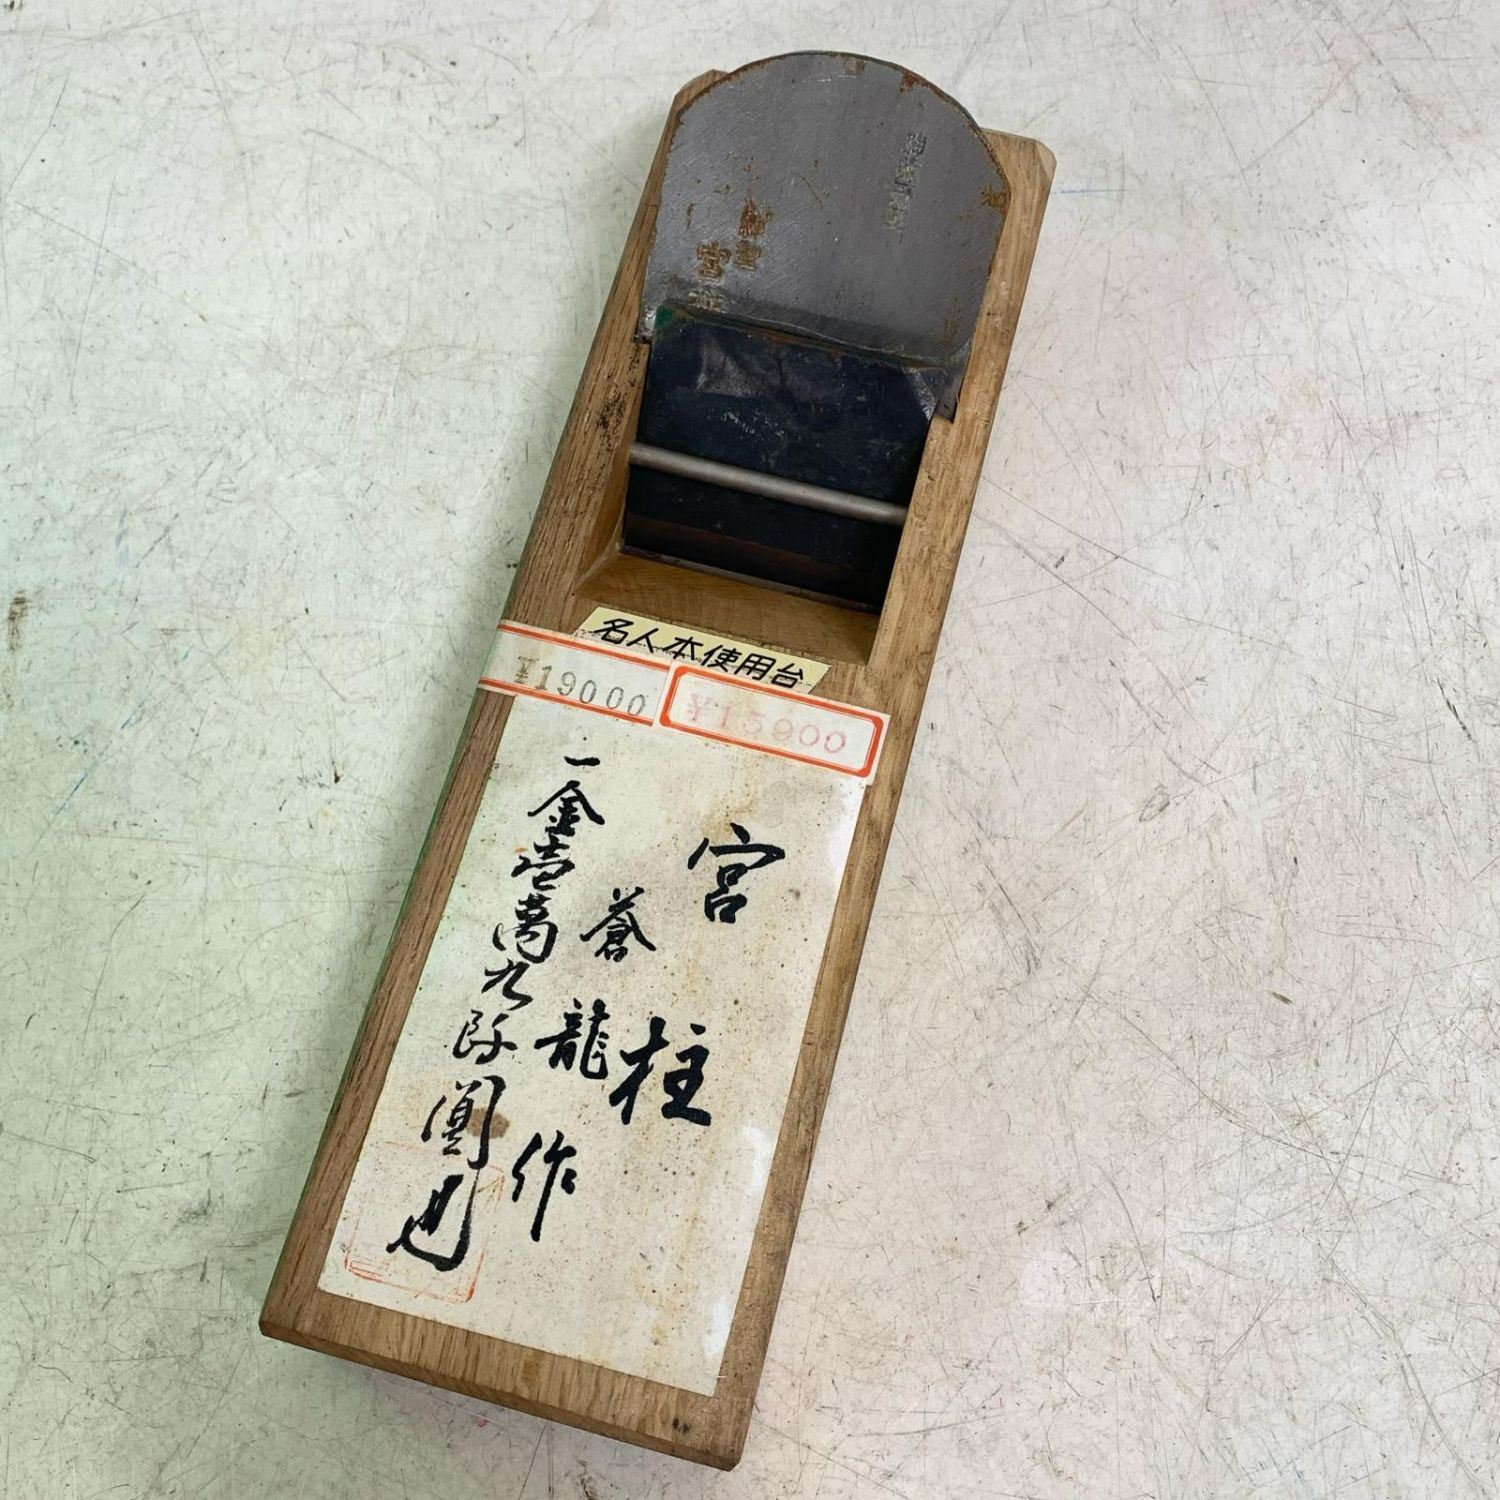 名人本使用台
¥19000
¥15900
宮柱
蒼龍作
一金壱萬九阡圓也
宮柱